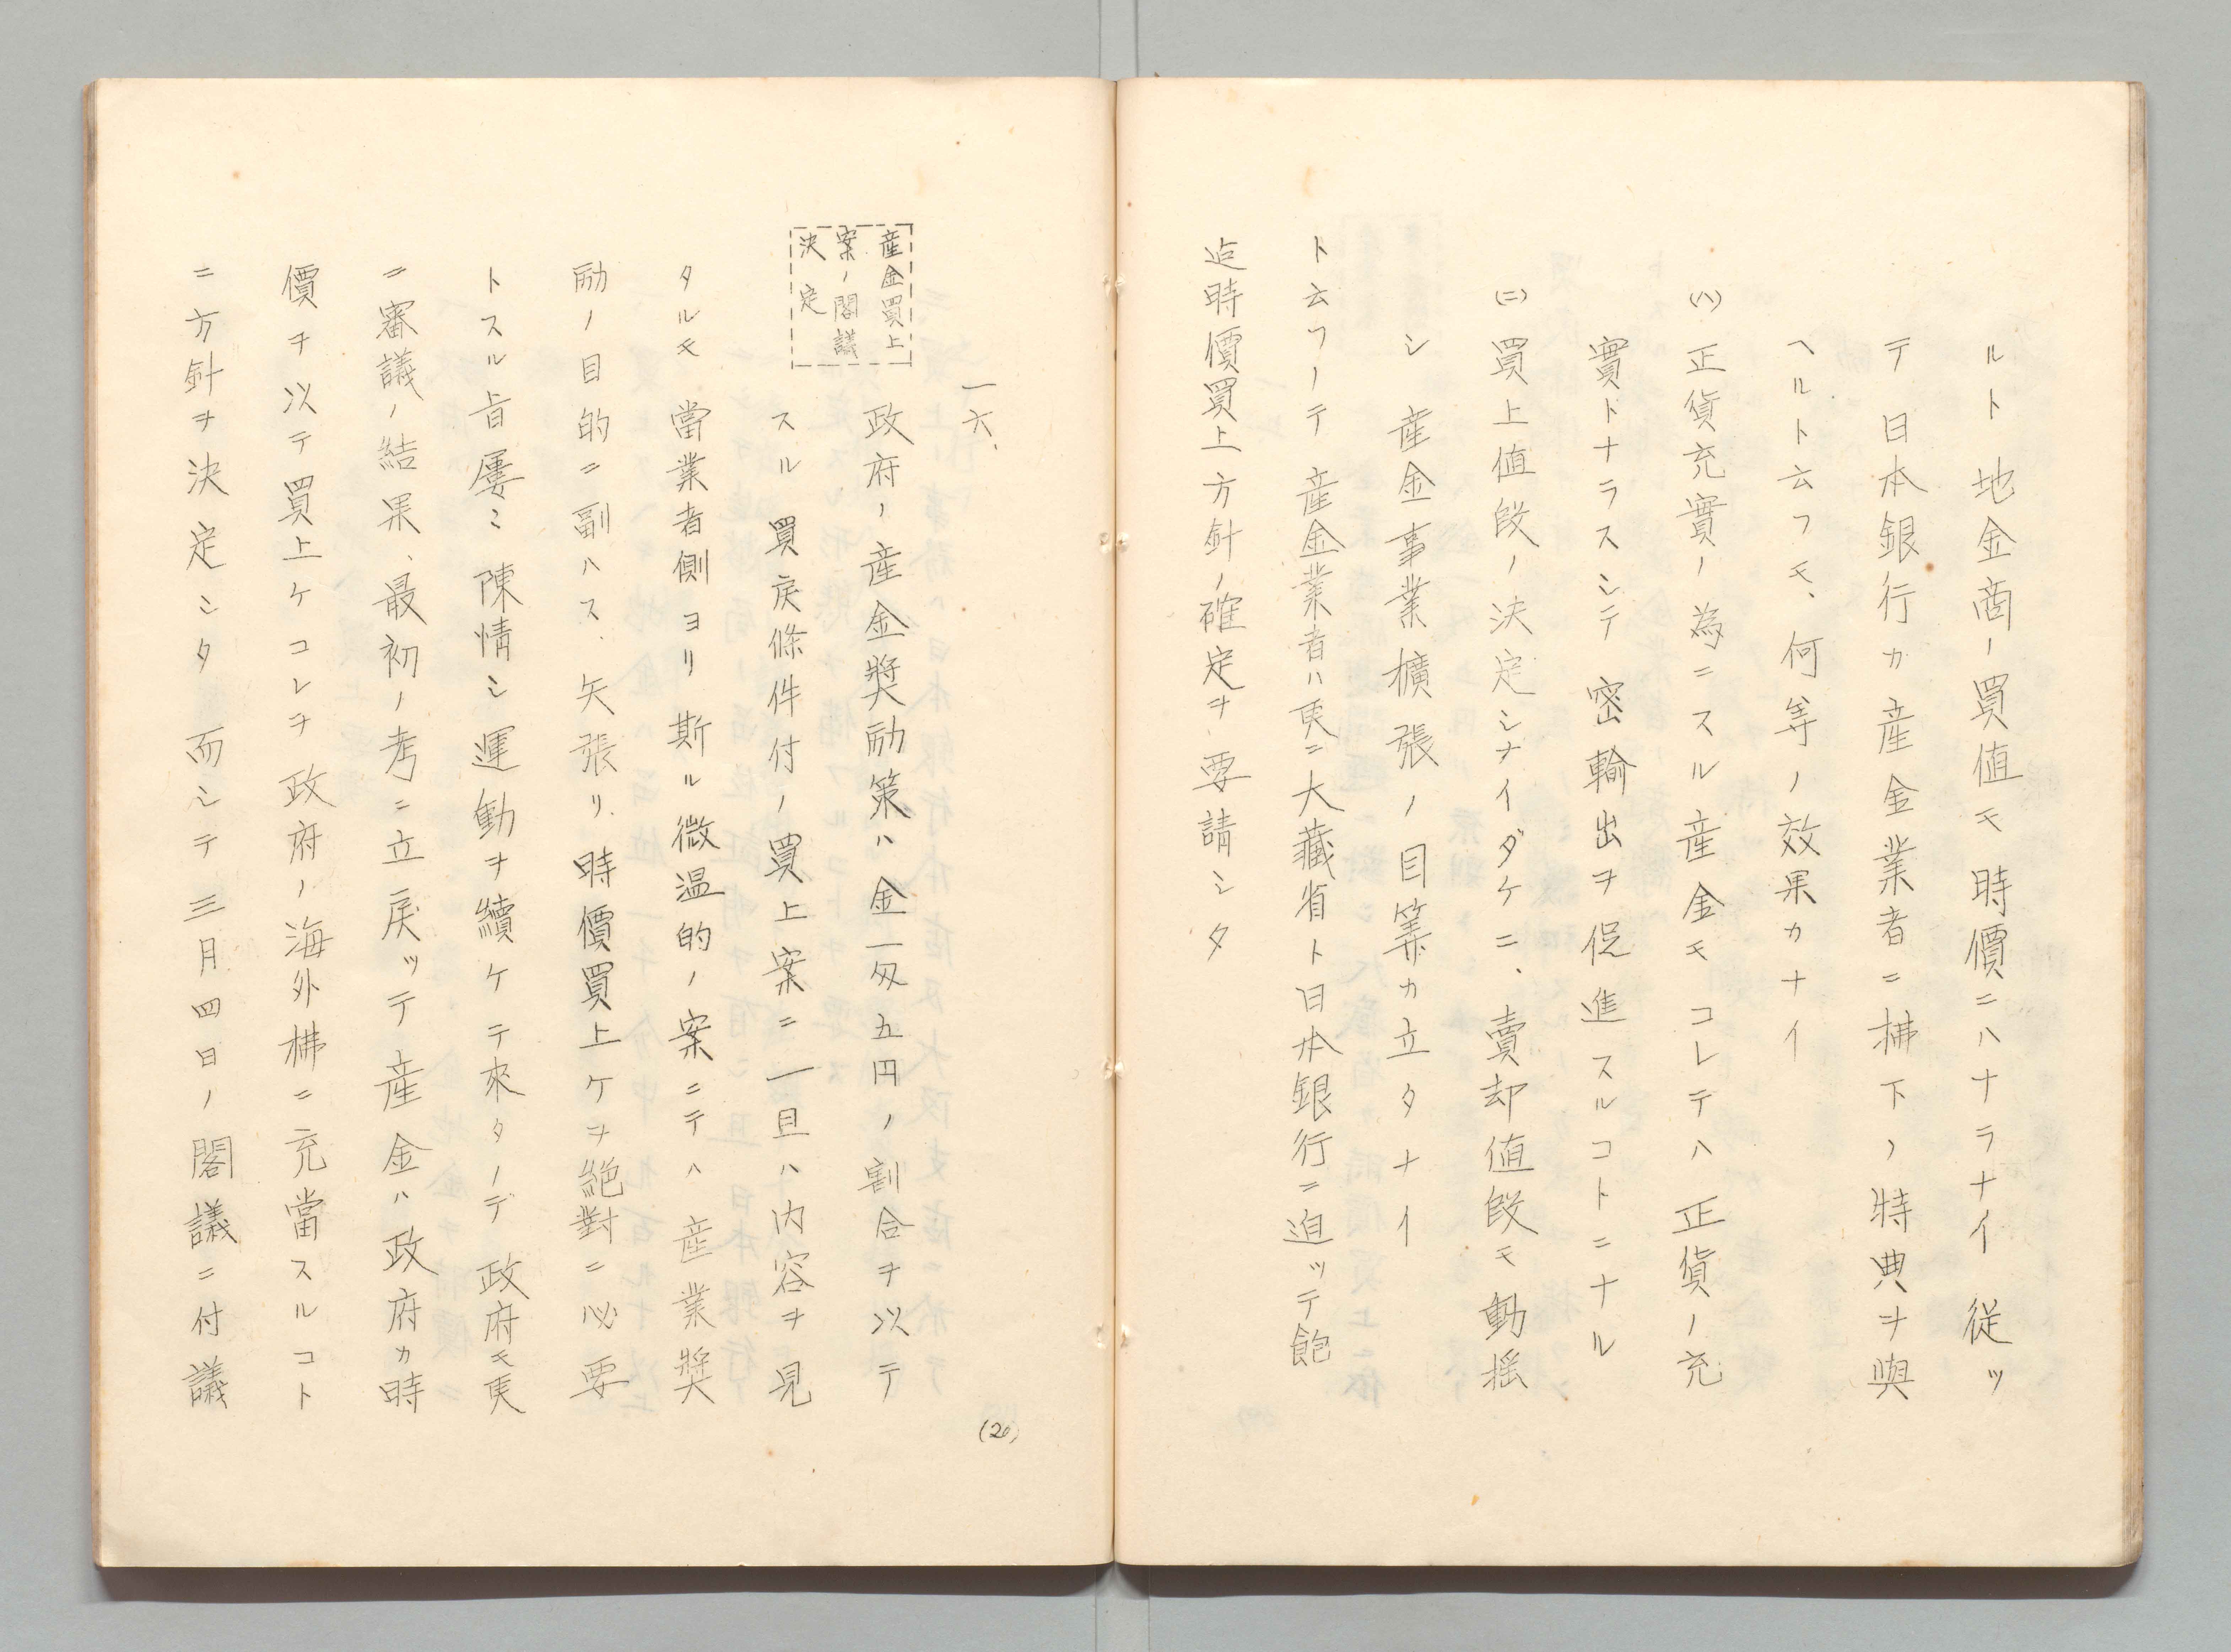 ルト 地金商ノ買値モ 時價ニハナラナイ 従ッ
テ 日本銀行カ産金業者ニ拂下ノ特典ヲ與
ヘルト云フモ、何等ノ效果カナイ
(ハ) 正貨充實ノ為ニスル産金モ コレテハ 正貨ノ充
實トナラスシテ 密輸出ヲ促進スルコトニナル
(ニ) 買上値段ノ決定シナイダケニ、賣却値段モ動揺
シ 産金事業擴張ノ目筭カ立タナイ
ト云フノテ 産金業者ハ更ニ大藏省ト日本銀行ニ迫ッテ飽
迄時價買上方針ノ確定ヲ要請シタ
一六、
産金買上
案ノ閣議
決定
政府ノ産金奬励策ハ金一匁五円ノ割合ヲ以テ
スル買戻條件付ノ買上案ニ一旦ハ内容ヲ見
タルモ 當業者側ヨリ斯ル微温的ノ案ニテハ 産業奬
励ノ目的ニ副ハス、矢張リ時價買上ケヲ絶對ニ必要
トスル旨屢〻陳情シ運動ヲ續ケテ來タノデ 政府モ更
ニ審議ノ結果、最初ノ考ニ立戻ッテ産金ハ政府カ時
價ヲ以テ買上ケコレヲ政府ノ海外拂ニ充當スルコト
ニ方針ヲ決定シタ 而シテ三月四日ノ閣議ニ付議
(20)